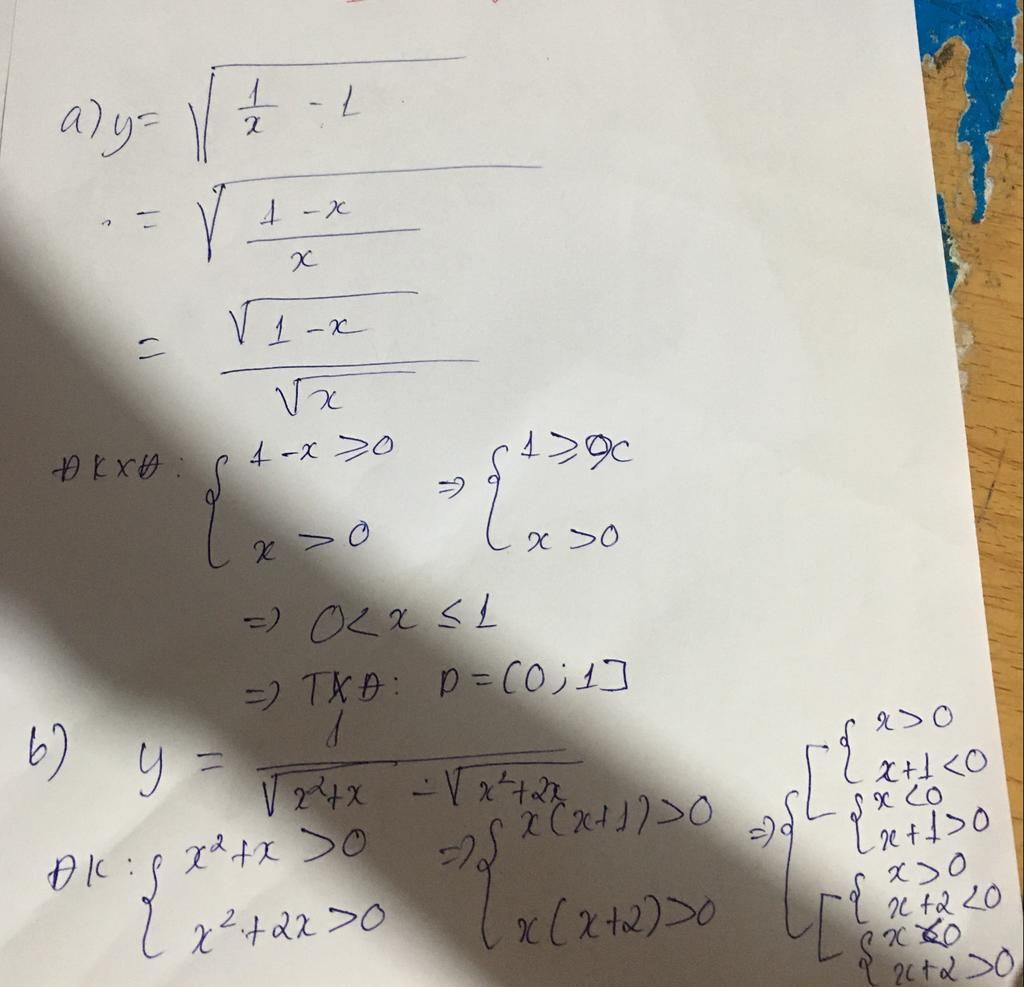 a) y = √(1/x - 1)
= √((1-x)/x)
= √(1-x)/√x
ĐKXĐ: { 1-x ≥ 0 ; x > 0 => { 1 ≥ x ; x > 0
=> 0 < x ≤ 1
=> TXĐ: D = (0; 1]
b) y = 1/(√(x²+x) - √(x²+2x))
ĐK: { x²+x > 0 ; x²+2x > 0 => { x(x+1) > 0 ; x(x+2) > 0 => { [ { x > 0 ; x+1 < 0 ; { x < 0 ; x+1 > 0 ; [ { x > 0 ; x+2 < 0 ; { x < 0 ; x+2 > 0